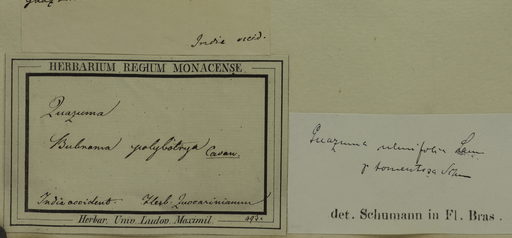 India occid.
HERBARIUM REGIUM MONACENSE.
Guazuma
Bubroma polybotrya Cavan.
India occident. Herb. Zuccarinianum
Herbar. Univ. Ludov. Maximil.
Guazuma ulmifolia Lam
γ tomentosa Sch
det. Schumann in Fl. Bras.